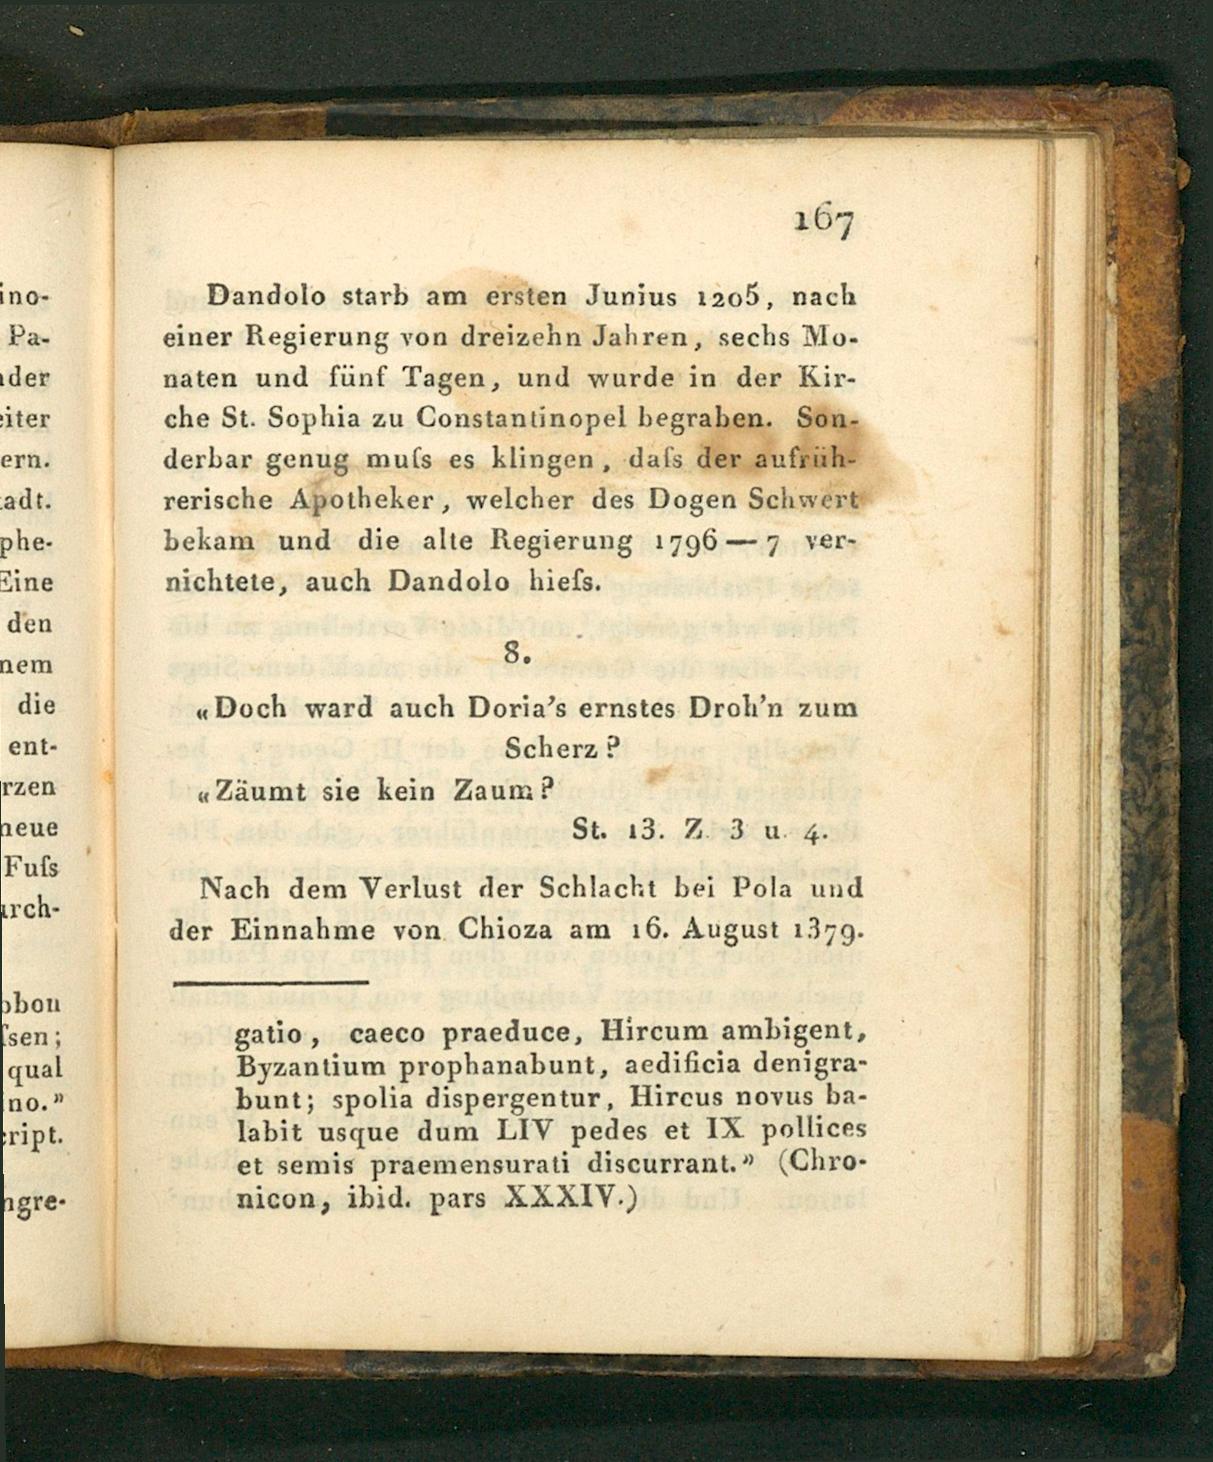 ino-
Pa-
nder
eiter
ern.
tadt.
phe-
Eine
den
nem
die
ent-
rzen
neue
Fuſs
urch-
bbon
ſsen;
qual
no."
cript.
ngre-
167
Dandolo starb am ersten Junius 1205, nach
einer Regierung von dreizehn Jahren, sechs Mo-
naten und fünf Tagen, und wurde in der Kir-
che St. Sophia zu Constantinopel begraben. Son-
derbar genug muſs es klingen, daſs der aufrüh-
rerische Apotheker, welcher des Dogen Schwert
bekam und die alte Regierung 1796—7 ver-
nichtete, auch Dandolo hieſs.
8.
«Doch ward auch Doria's ernstes Droh'n zum
Scherz?
«Zäumt sie kein Zaum?
St. 13. Z 3 u. 4.
Nach dem Verlust der Schlacht bei Pola und
der Einnahme von Chioza am 16. August 1379.
gatio, caeco praeduce, Hircum ambigent,
Byzantium prophanabunt, aedificia denigra-
bunt; spolia dispergentur, Hircus novus ba-
labit usque dum LIV pedes et IX pollices
et semis praemensurati discurrant." (Chro-
nicon, ibid. pars XXXIV.)